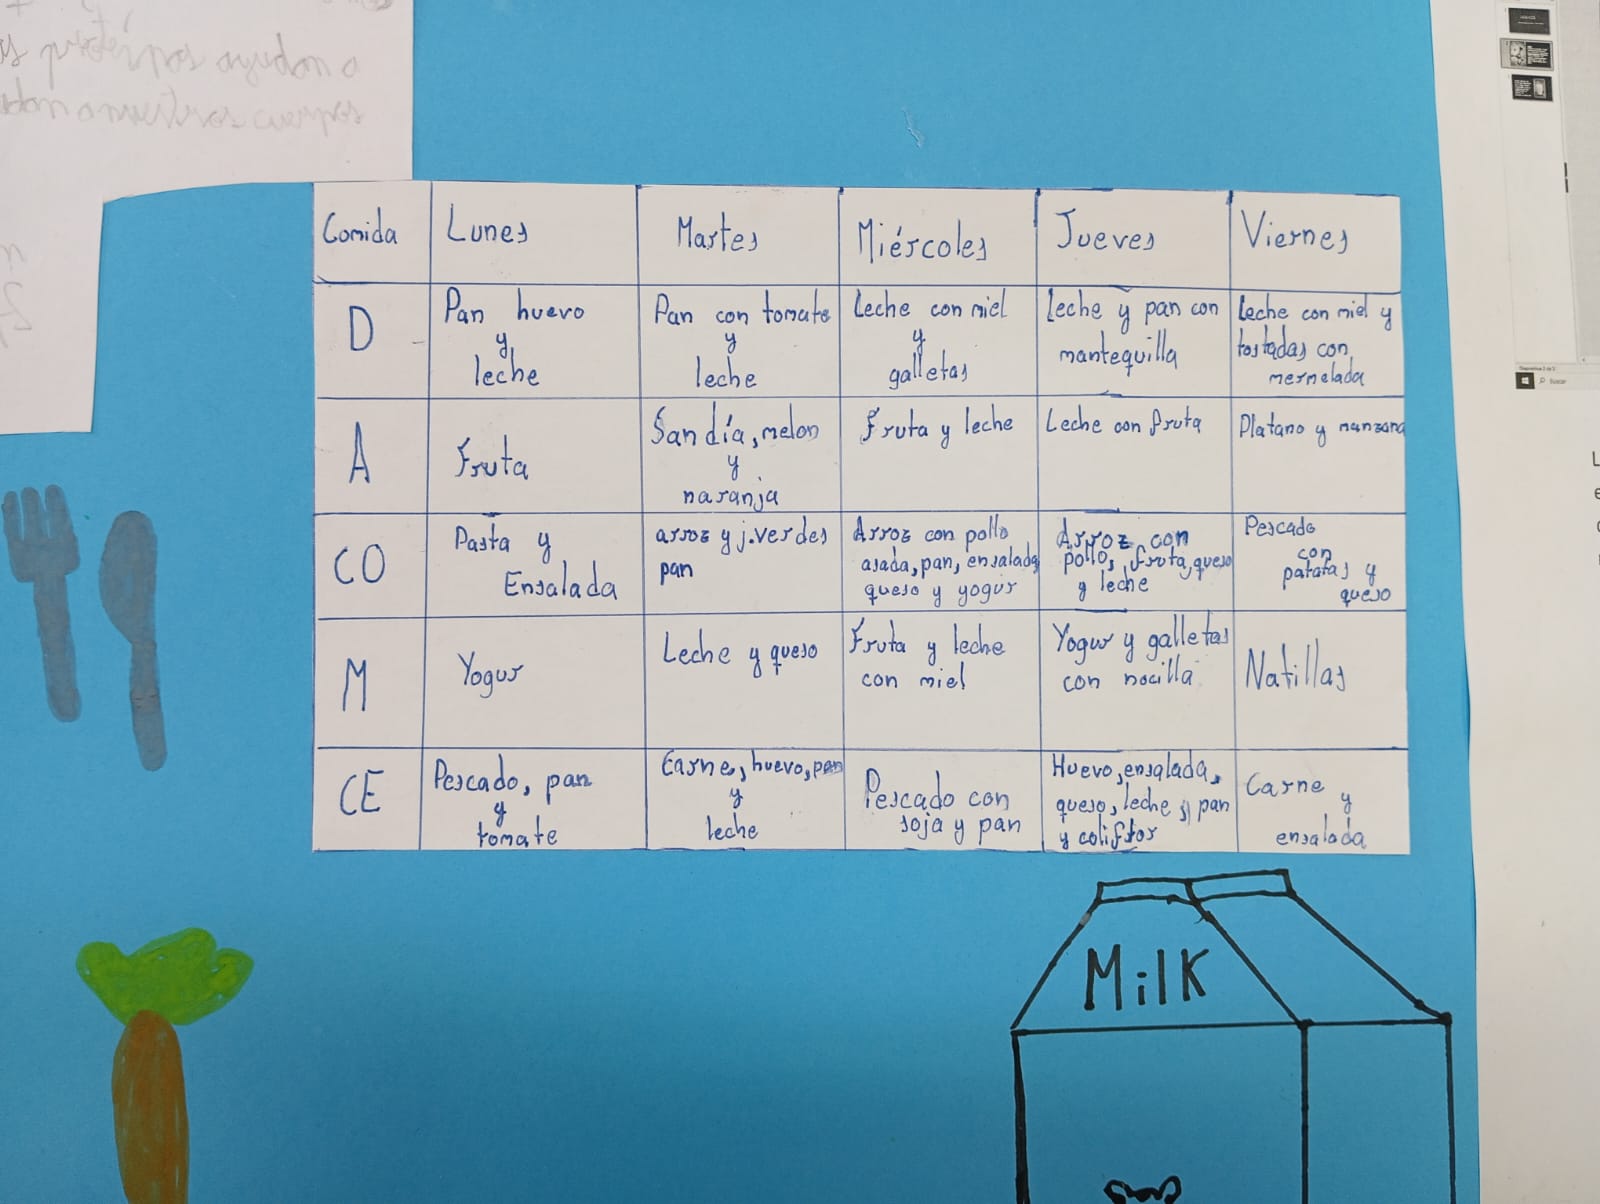 proteínas ayudan a
a nuestros cuerpos
Comida
Lunes
Martes
Miércoles
Jueves
Viernes
D
Pan huevo
y
leche
Pan con tomate
y
leche
Leche con miel
y
galletas
leche y pan con
mantequilla
Leche con miel y
tostadas con
mermelada
A
Fruta
Sandía, melon
y
naranja
Fruta y leche
Leche con fruta
Platano y manzana
CO
Pasta y
Ensalada
arroz y j.verdes
pan
Arroz con pollo
asada, pan, ensalada
queso y yogur
Arroz con
pollo, fruta, queso
y leche
Pescado
con
patatas y
queso
M
Yogur
Leche y queso
Fruta y leche
con miel
Yogur y galletas
con nocilla
Natillas
CE
Pescado, pan
y
tomate
Carne, huevo, pan
y
leche
Pescado con
soja y pan
Huevo, ensalada,
queso, leche y pan
y coliflor
Carne y
ensalada
Milk